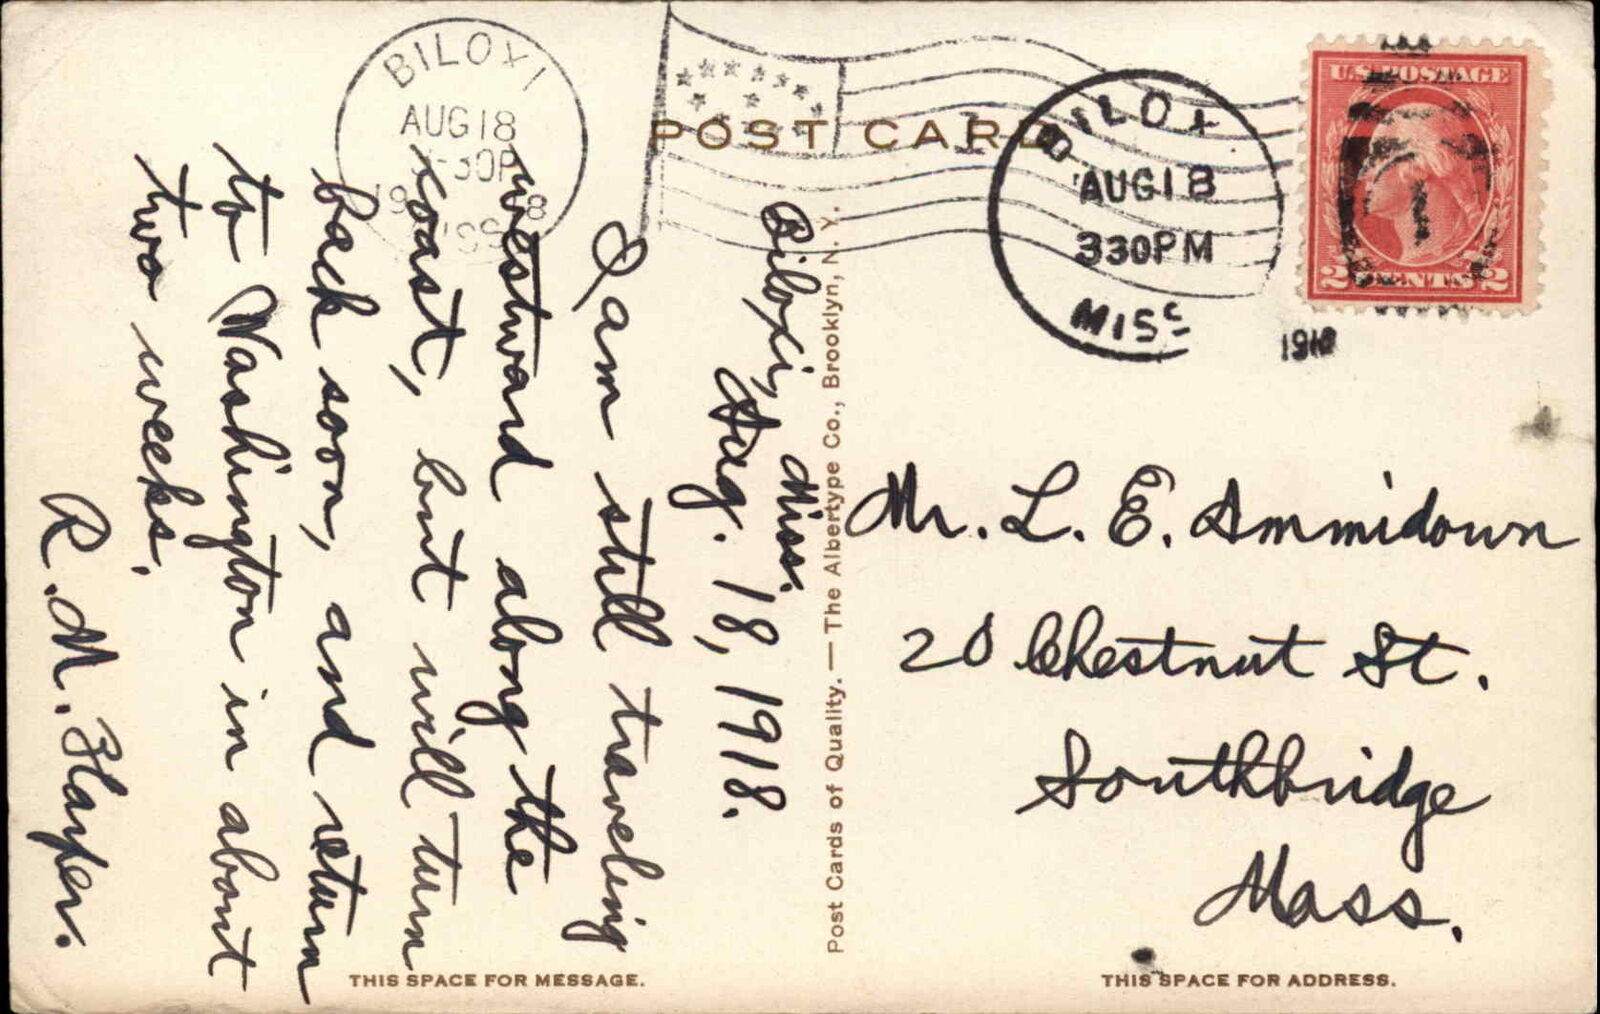 POST CARD
BILOXI
AUG 18
BILOX
AUG 18
330PM
MISS
1918
U.S. POSTAGE
2 CENTS 2
Biloxi, Miss.
Aug. 18, 1918.
I am still traveling
westward along the
coast, but will turn
back soon, and return
to Washington in about
two weeks.
R. M.
Post Cards of Quality. — The Albertype Co., Brooklyn, N. Y.
Mr. L. E. Ammidown
20 Chestnut St.
Southbridge
Mass.
THIS SPACE FOR MESSAGE.
THIS SPACE FOR ADDRESS.